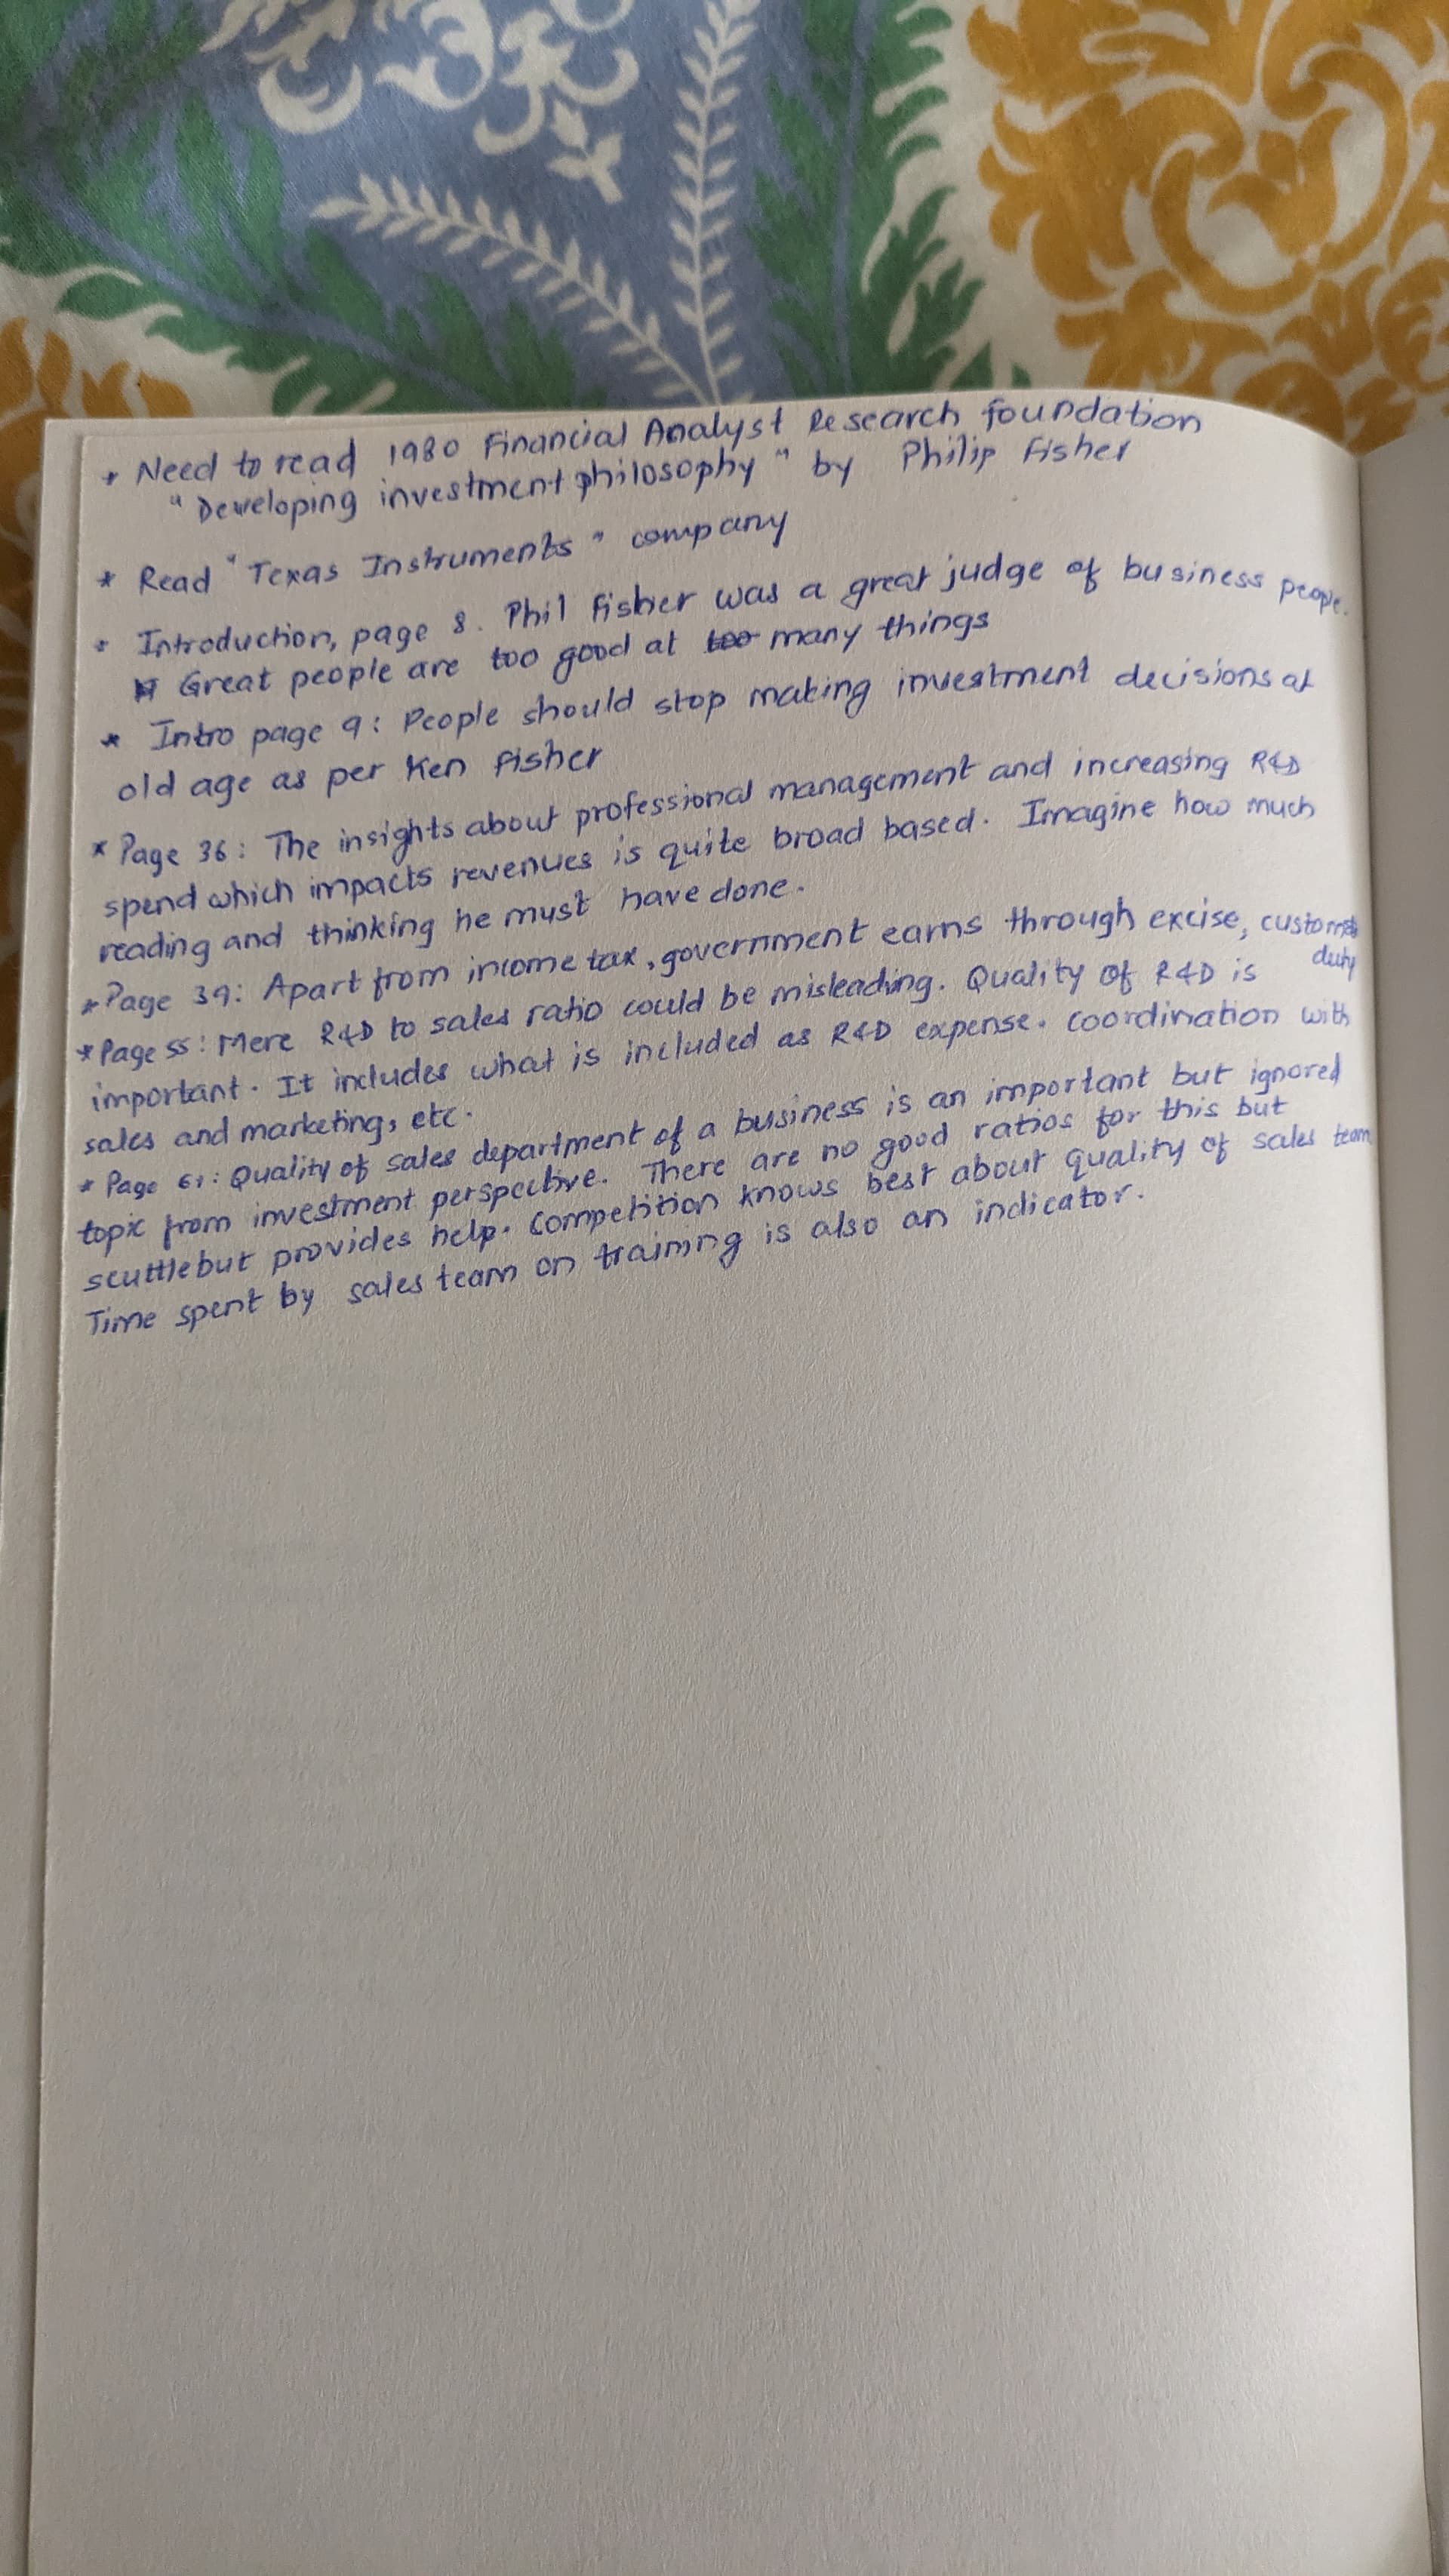 * Need to read 1980 Financial Analyst Research foundation
"Developing investment philosophy" by Philip Fisher
* Read "Texas Instruments" company
* Introduction, page 8. Phil Fisher was a great judge of business people.
Great people are too good at too many things
* Intro page 9: People should stop making investment decisions at
old age as per Ken Fisher
* Page 36: The insights about professional management and increasing R&D
spend which impacts revenues is quite broad based. Imagine how much
reading and thinking he must have done.
* Page 39: Apart from income tax, government earns through excise, customs
duty
* Page 55: Mere R&D to sales ratio could be misleading. Quality of R&D is
important. It includes what is included as R&D expense. Coordination with
sales and marketing, etc.
* Page 61: Quality of sales department of a business is an important but ignored
topic from investment perspective. There are no good ratios for this but
scuttlebut provides help. Competition knows best about quality of sales team
Time spent by sales team on training is also an indicator.